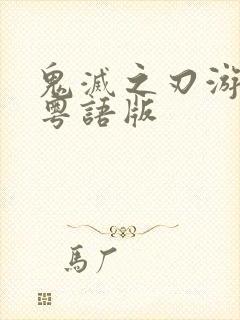 鬼滅之刃游
粵語版
馬厂